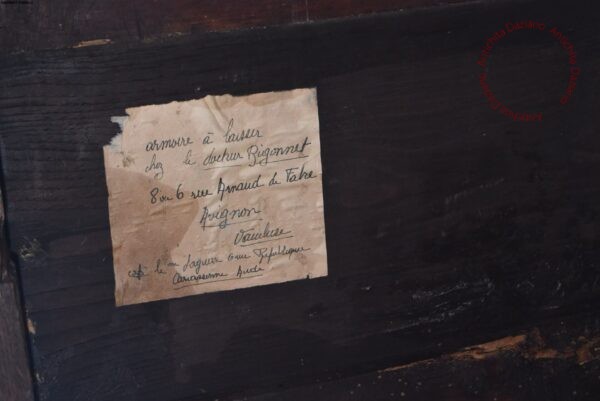 armoire à laisser
chez le docteur Bigonnet
8 ou 6 rue Arnaud de Fabre
Avignon
Vaucluse
le rue République
Carcassonne Aude